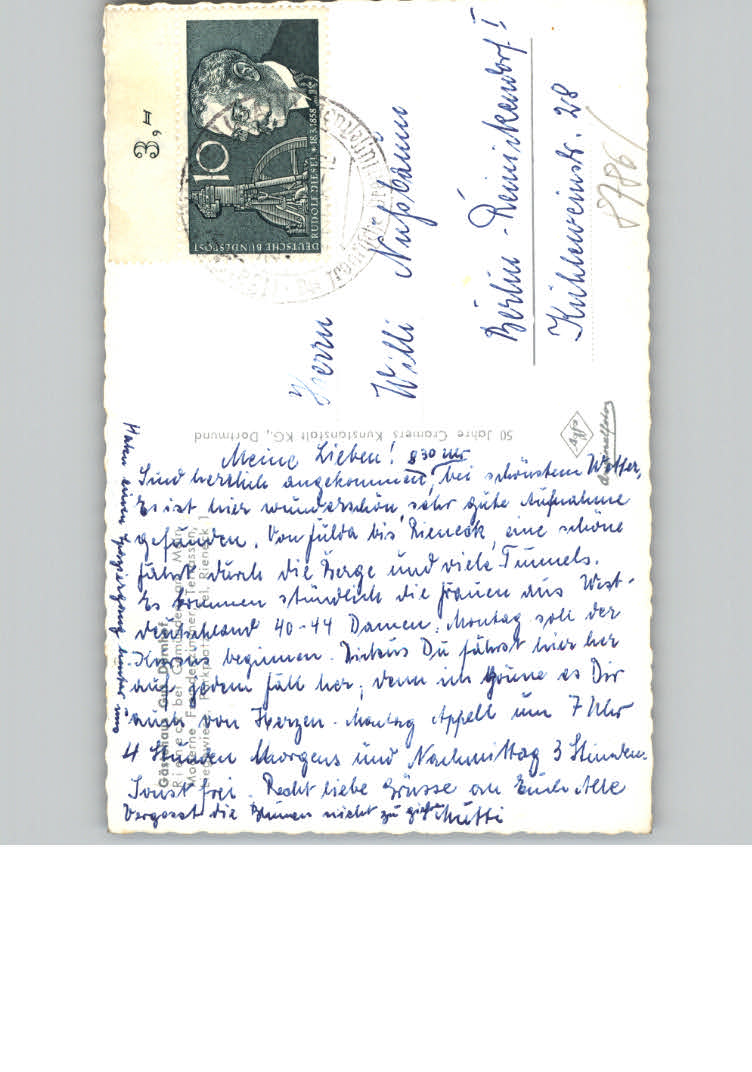 3,-
10
DEUTSCHE BUNDESPOST
RUDOLF DIESEL * 18.3.1858
Herrn
Willi Nußbaum
Berlin-Reinickendorf I
Kühleweinstr. 28
8786
50 Jahre Cramers Kunstanstalt KG., Dortmund
Gästehaus Gut Dürnhof
Rieneck bei Gemünden am Main
Moderne Fremdenzimmer, Terrassen,
Liegewiesen, Parkplatz [Tel. Rieneck]
Meine Lieben! 8 30 Uhr
Sind herzlich angekommen, bei schönstem Wetter,
Es ist hier wunderschön, sehr gute Aufnahme
gefunden. Von Fulda bis Rieneck, eine schöne
Fahrt durch die Berge und viele Tunnels.
Es kommen stündlich die Frauen aus West-
deutschland 40-44 Damen. Montag soll der
Kursus beginnen. Du fährst hier her
auf jedem Fall her, denn ich gönne es Dir
auch von Herzen. Montag Appell um 7 Uhr
4 Stunden Morgens und Nachmittag 3 Stunden
Sonst frei. Recht liebe Grüsse an Euch Alle
Vergesst die Blumen nicht zu gießen Mutti
Haben einen Spaziergang hinter uns